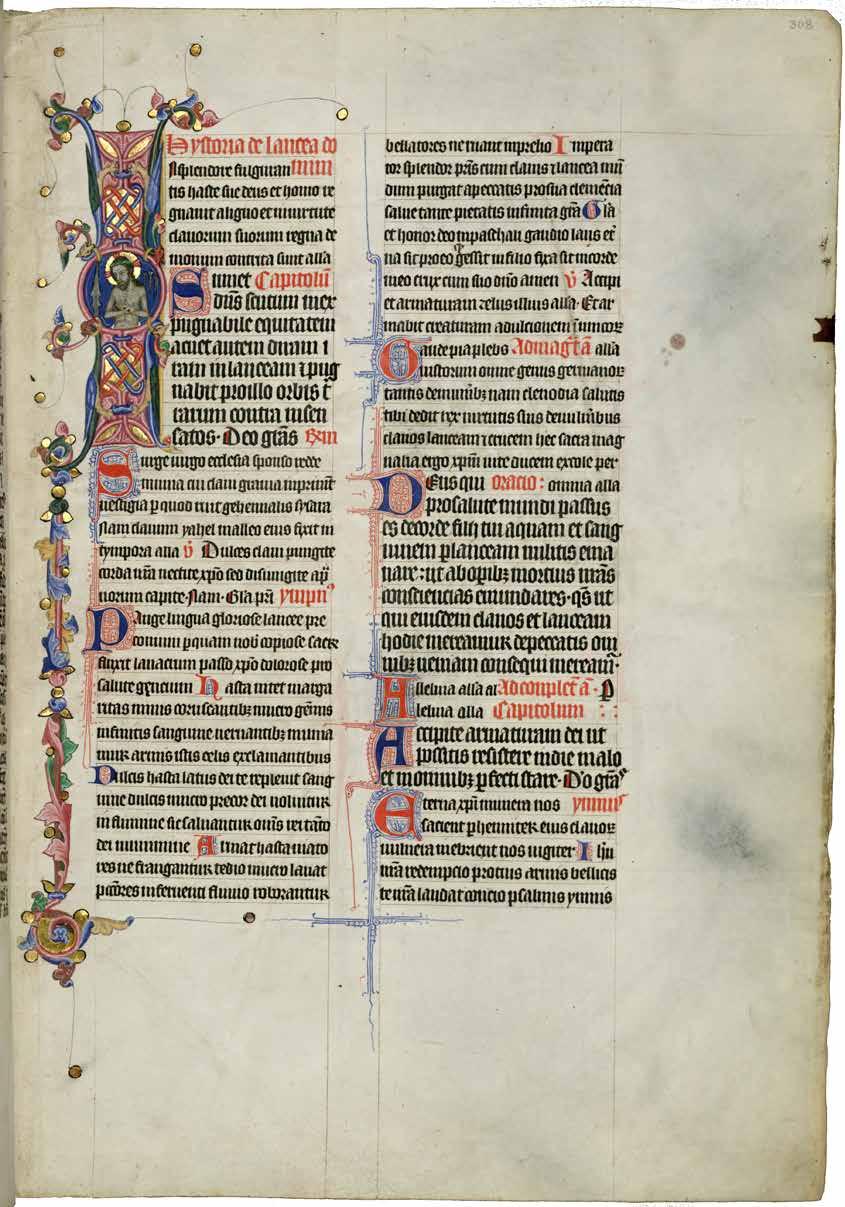 308
Hystoria de lancea do
In splendore fulguran mini
tis haste sue deus et homo re
gnavit a ligno et in virtute
clavorum suorum regna de
monum contrita sunt alla
Sumet Capitulum
dns scutum inex
pugnabile equitatem
acuet autem diram i
ram in lanceam et pug
nabit pro illo orbis t
rarum contra insen
satos. Deo gras
Surge virgo ecclesia sponso vide
vestigia per quod
Nam clavum yahel malleo eius fixit in
tympora alla v Dulces clavi pungite
corda nra nectite xpo sed disiungite
uorum capite. Nam. Gla pri ympn
Pange lingua gloriose lancee pre
conium per quam nob copiose sacr
fluxit lavacrum passo xpo dolorose pro
salute gencium Hasta nitet marga
ritas minis coruscantibz mucro gemis
infinitis sanguine vernantibz muni
tur armis istis celis exclamantibus
Dulcis hasta latus dei te replevit sang
uine dulcis mucro precor dei
in flumine sic salvantur
dei Almat hasta
res ne frangantur tedio mucro lavat
pctores in ferventi fluvio roborantur
bellatores ne ruant in prelio Impera
tor splendor pris cum clavis et lancea mu
dum purgat a peccatis pro sua clemencia
salve tante pietatis infinita gra Gla
et honor deo in paschali gaudio laus et
na sit pro eo gessit in filio fixa sit in corde
meo crux cum suo dno amen v Accipi
et armaturam zelus illius alla. Et ar
mabit creaturam ad ulcionem inimicor
Gaude pia plebs Ad magt a alla
iustorum omne genus germanor
tantis demum nam clenodia salutis
tibi dedit rex virtutis
clavos lanceam et crucem hec sacra mag
nalia ergo xpm vite ducem excole per
Deus qui oracio: omnia alla
pro salute mundi passus
es de corde filii tui aquam et sang
uinem per lanceam militis ema
nare: ut ab opibz mortuis nras
consciencias emundares. qs ut
qui eiusdem clavos et lanceam
hodie mereamur de peccatis om
nibz veniam consequi mereamur.
Alleluia alla Ad complet a
leluia alla Capitulum
Accipite armaturam dei ut
possitis resistere in die malo
et in omnibz perfecti stare. Do gras
Eterna xpi munera nos ympnus
sacient perhenniter eius clavor
vulnera inebrient nos iugiter Ihu
nra redempcio protius armis bellicis
te nra laudat concio psalmis ymnis